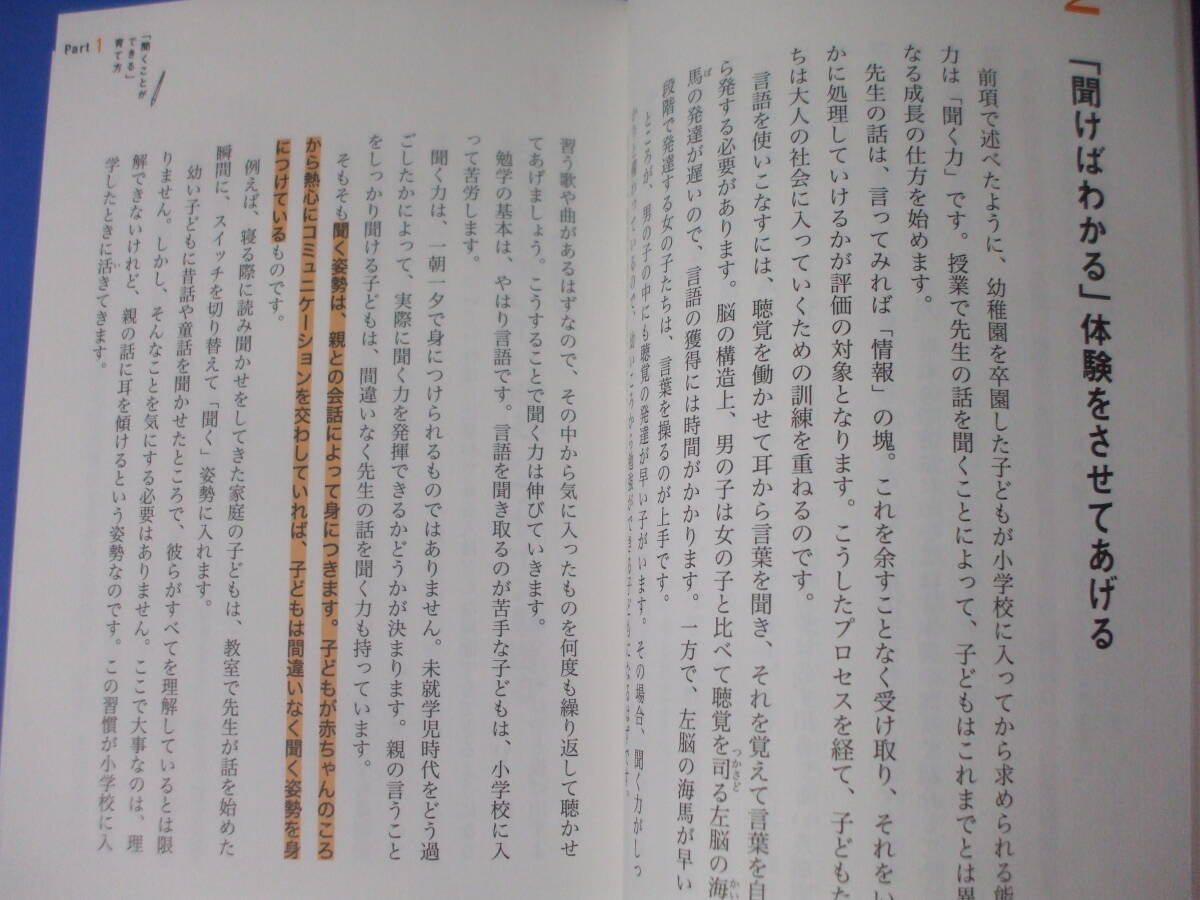 2
「聞けばわかる」体験をさせてあげる
前項で述べたように、幼稚園を卒園した子どもが小学校に入ってから求められる能
力は「聞く力」です。授業で先生の話を聞くことによって、子どもはこれまでとは異
なる成長の仕方を始めます。
先生の話は、言ってみれば「情報」の塊。これを余すことなく受け取り、それをい
かに処理していけるかが評価の対象となります。こうしたプロセスを経て、子どもた
ちは大人の社会に入っていくための訓練を重ねるのです。
言語を使いこなすには、聴覚を働かせて耳から言葉を聞き、それを覚えて言葉を自
ら発する必要があります。脳の構造上、男の子は女の子と比べて聴覚を司る左脳の海
つかさど
かい
馬の発達が遅いので、言語の獲得には時間がかかります。一方で、左脳の海馬が早い
ば
段階で発達する女の子たちは、言葉を操るのが上手です。
ところが、男の子の中にも聴覚の発達が早い子がいます。その場合、聞く力がしっ
Part 1
「聞くことが
できる」
育て方
習う歌や曲があるはずなので、その中から気に入ったものを何度も繰り返して聴かせ
てあげましょう。こうすることで聞く力は伸びていきます。
勉学の基本は、やはり言語です。言語を聞き取るのが苦手な子どもは、小学校に入
って苦労します。
聞く力は、一朝一夕で身につけられるものではありません。未就学児時代をどう過
ごしたかによって、実際に聞く力を発揮できるかどうかが決まります。親の言うこと
をしっかり聞ける子どもは、間違いなく先生の話を聞く力も持っています。
そもそも聞く姿勢は、親との会話によって身につきます。子どもが赤ちゃんのころ
から熱心にコミュニケーションを交わしていれば、子どもは間違いなく聞く姿勢を身
につけているものです。
例えば、寝る際に読み聞かせをしてきた家庭の子どもは、教室で先生が話を始めた
瞬間に、スイッチを切り替えて「聞く」姿勢に入れます。
幼い子どもに昔話や童話を聞かせたところで、彼らがすべてを理解しているとは限
りません。しかし、そんなことを気にする必要はありません。ここで大事なのは、理
解できないけれど、親の話に耳を傾けるという姿勢なのです。この習慣が小学校に入
学したときに活きてきます。
い